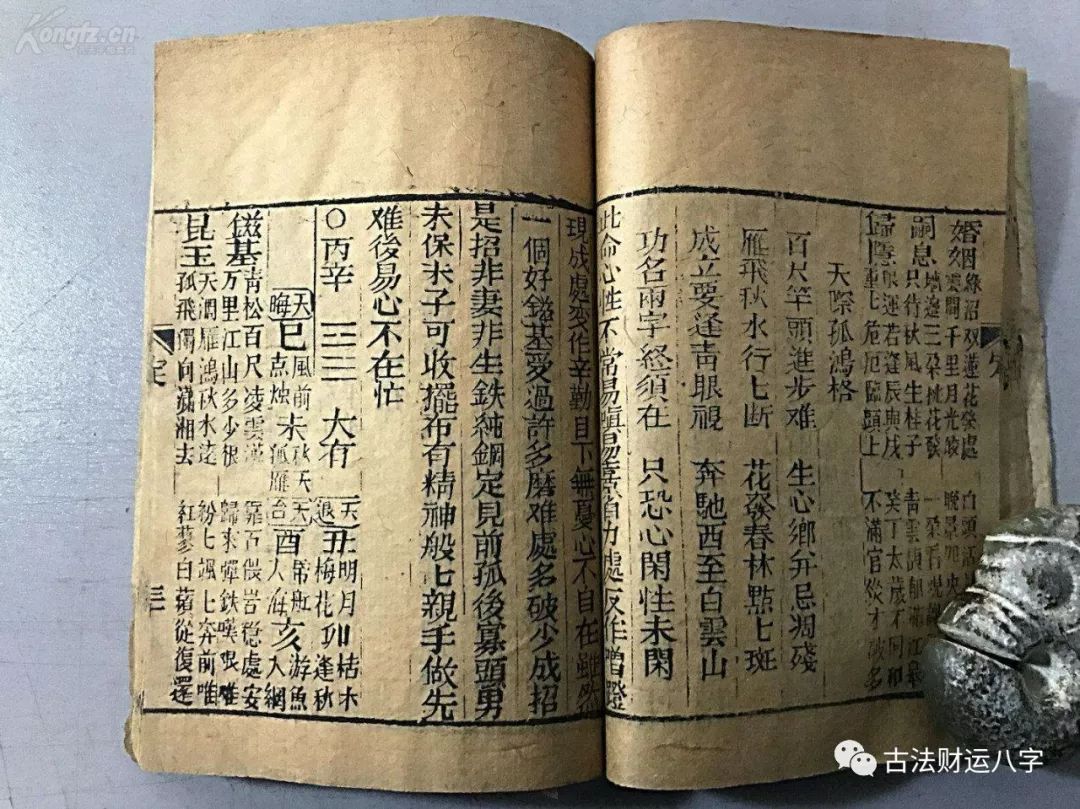 Kongfz.cn
婚姻 綠沼双蓮花發處
千里月光 白頭
嗣息 墻邊三朵桃花發 一朵
只待秋風生桂子 青雲
歸隱 限運若逢辰與戌 癸丁太歲不同和
重七危厄臨頭上 不滿官從才破多
天際孤鴻格
百尺竿頭進步难 生心鄉井忌凋殘
雁飛秋水行七断 花發春林點七斑
成立要逢青眼視 奔馳西至白雲山
功名兩字終須在 只恐心閑性未閑
此命心性不常易 處反作
現成處变作辛勤目下無憂心不自在雖然
一個好鎡基受過許多磨难處多破少成招
是招非妻非生鉄純鋼定見前孤後寡頭男
未保末子可收擺布有精神般七親手做先
难後易心不在忙
○丙辛 三三 大有
天丑明月 卯枯木
退 梅花 逢秋
天晦 巳風前点烛 未秋天孤雁
天 酉 亥游魚入網
鎡基 青松百尺凌雲漢 靠百偎岩穏處安
万里江山多少根 歸來彈鉄嘆艰难
昆玉 天濶雁鴻秋水遠 紛七颯七奔前
孤飛獨向瀟湘去 紅蓼白蘋從復還
定
三
古法财运八字